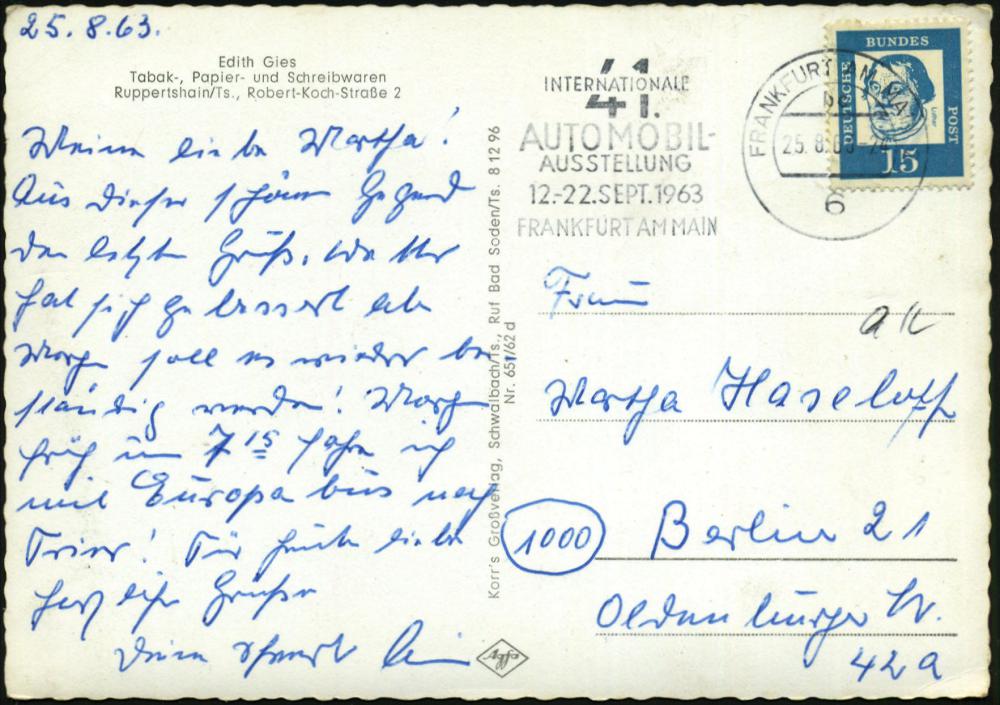 25.8.63.
Edith Gies
Tabak-, Papier- und Schreibwaren
Ruppertshain/Ts., Robert-Koch-Straße 2
Meine liebe Martha!
Aus dieser schönen Gegend
den letzten Gruß.
hat sich gebessert
Morgen soll es wieder be
ständig werden! Morgen
früh um 7 15 fahre ich
mit Europabus nach
Trier! Für heute liebe
herzliche Grüße
Deine
Korr's Großverlag, Schwalbach/Ts., Ruf Bad Soden/Ts. 8 12 96
Nr. 651/62 d
Agfa
INTERNATIONALE
41.
AUTOMOBIL-
AUSSTELLUNG
12.-22.SEPT.1963
FRANKFURT AM MAIN
FRANKFURT AM MAIN
25.8.63
6
DEUTSCHE
BUNDES
POST
Luther
15
Frau
Martha Haseloff
1000 Berlin 21
Oldenburger Str.
42a